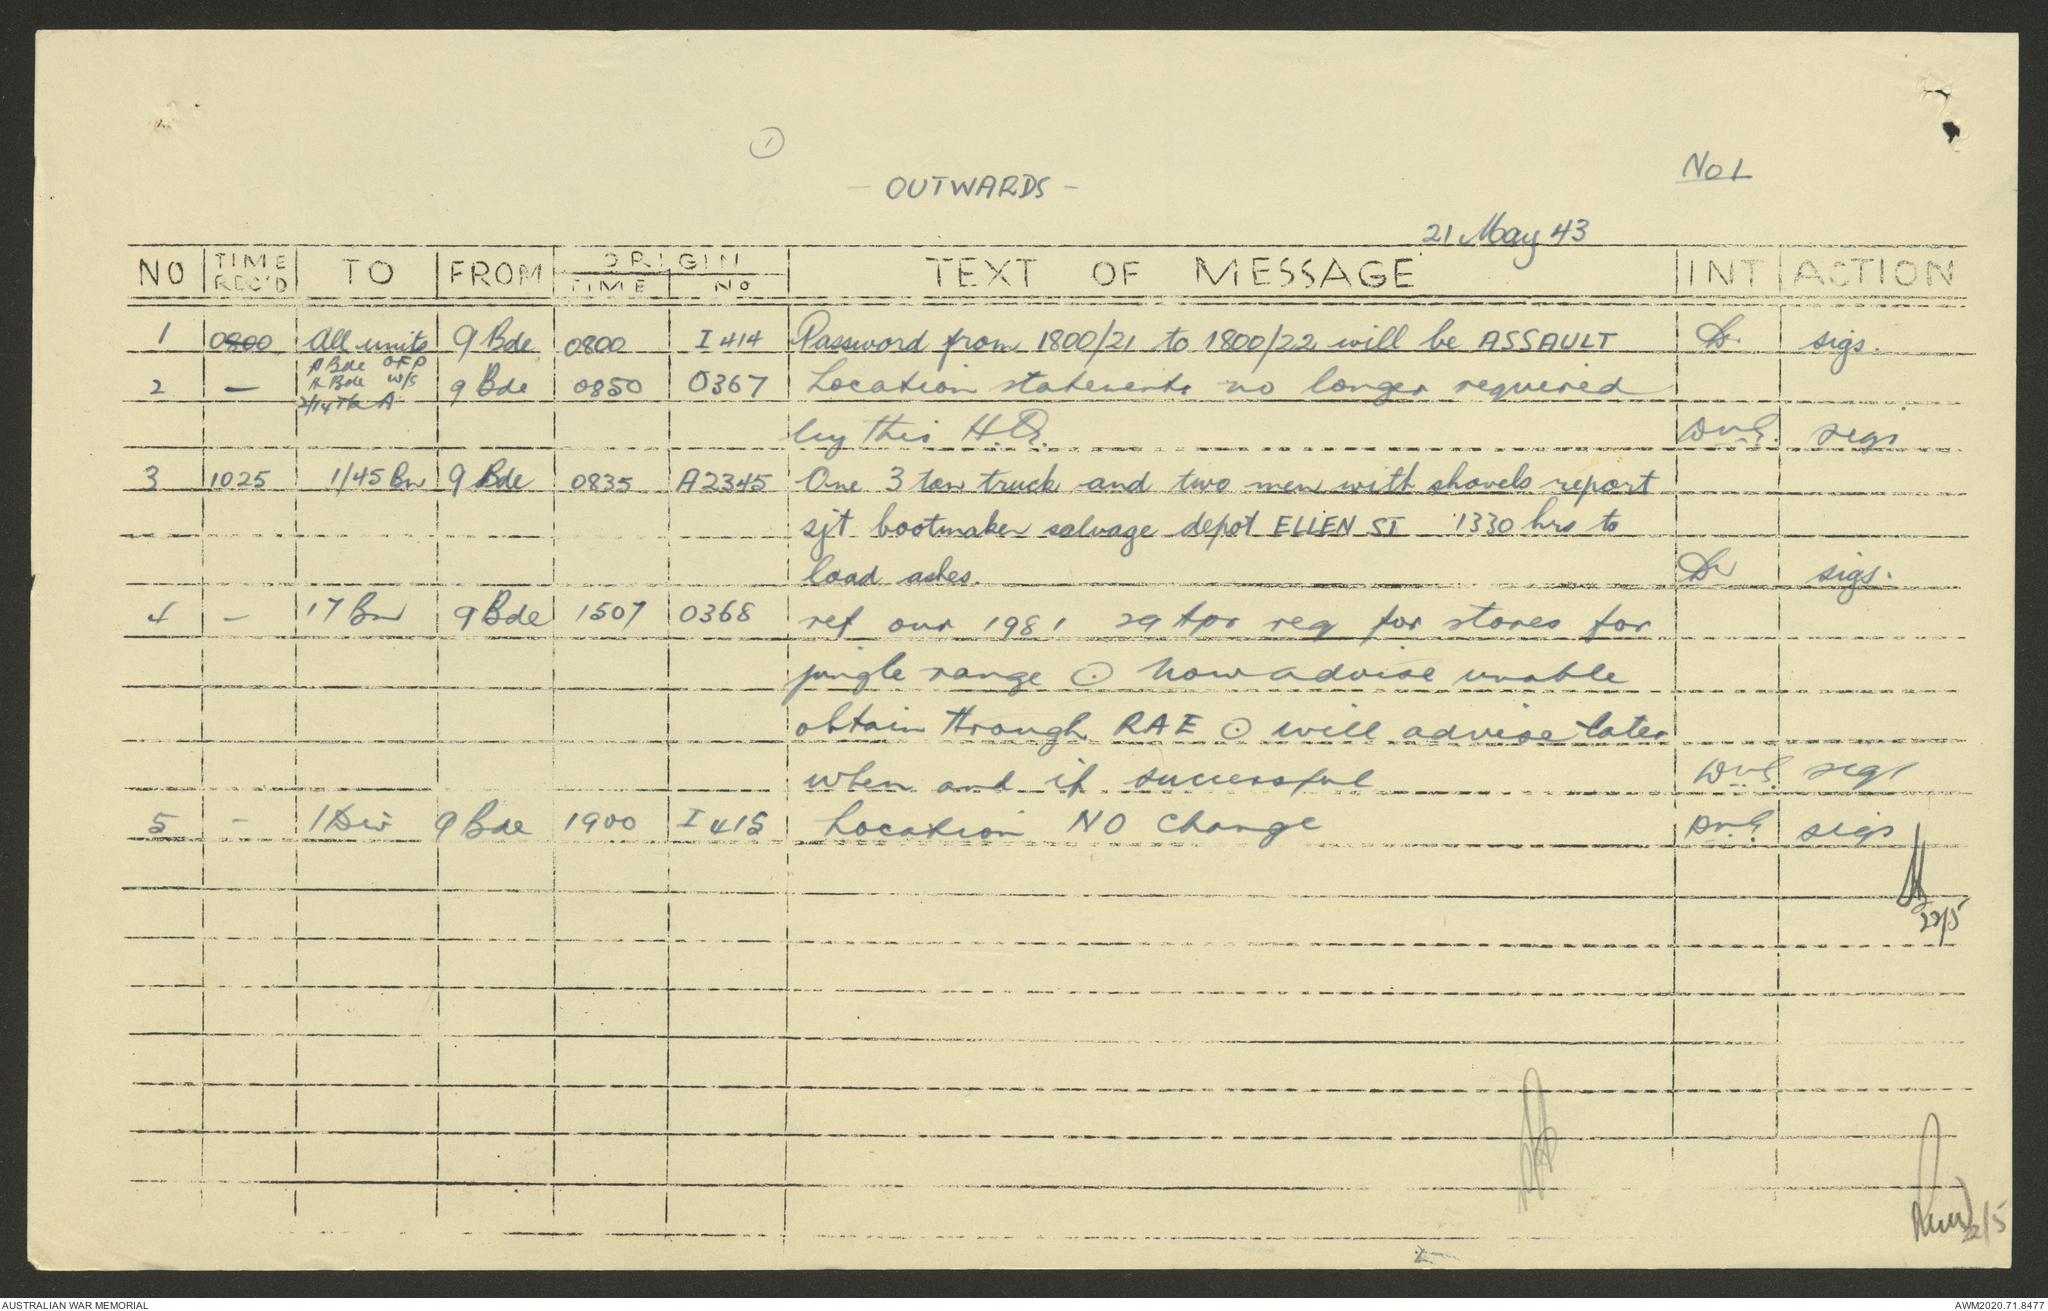 1
NO 1
- OUTWARDS -
21 May 43
NO TIME REC'D TO FROM ORIGIN TIME NO TEXT OF MESSAGE INT ACTION
1 0800 All units 9 Bde 0800 I 414 Password from 1800/21 to 1800/22 will be ASSAULT sigs.
2 — 9 Bde 0850 O367 Location statements no longer required
by this H.Q. sigs
3 1025 1/45 Bn 9 Bde 0835 A2345 One 3 ton truck and two men with shovels report
sjt bootmaker salvage depot ELLEN ST 1330 hrs to
load ashes. sigs.
4 - 17 Bn 9 Bde 1507 O368 ref our 1981 29 Apr req for stores for
jungle range ⊙ Now advise unable
obtain through RAE ⊙ will advise later
when and if successful sigs
5 - 1 Div 9 Bde 1900 I 415 Location NO change sigs
22/5
22/5
AUSTRALIAN WAR MEMORIAL
AWM2020.71.8477